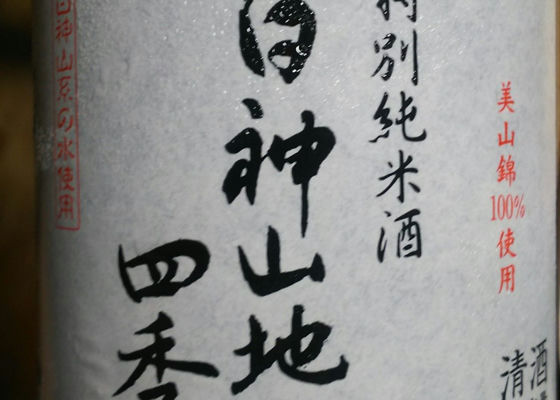 美山錦100%使用
清酒
特別純米酒
白神山地
四季
白神山系の水使用